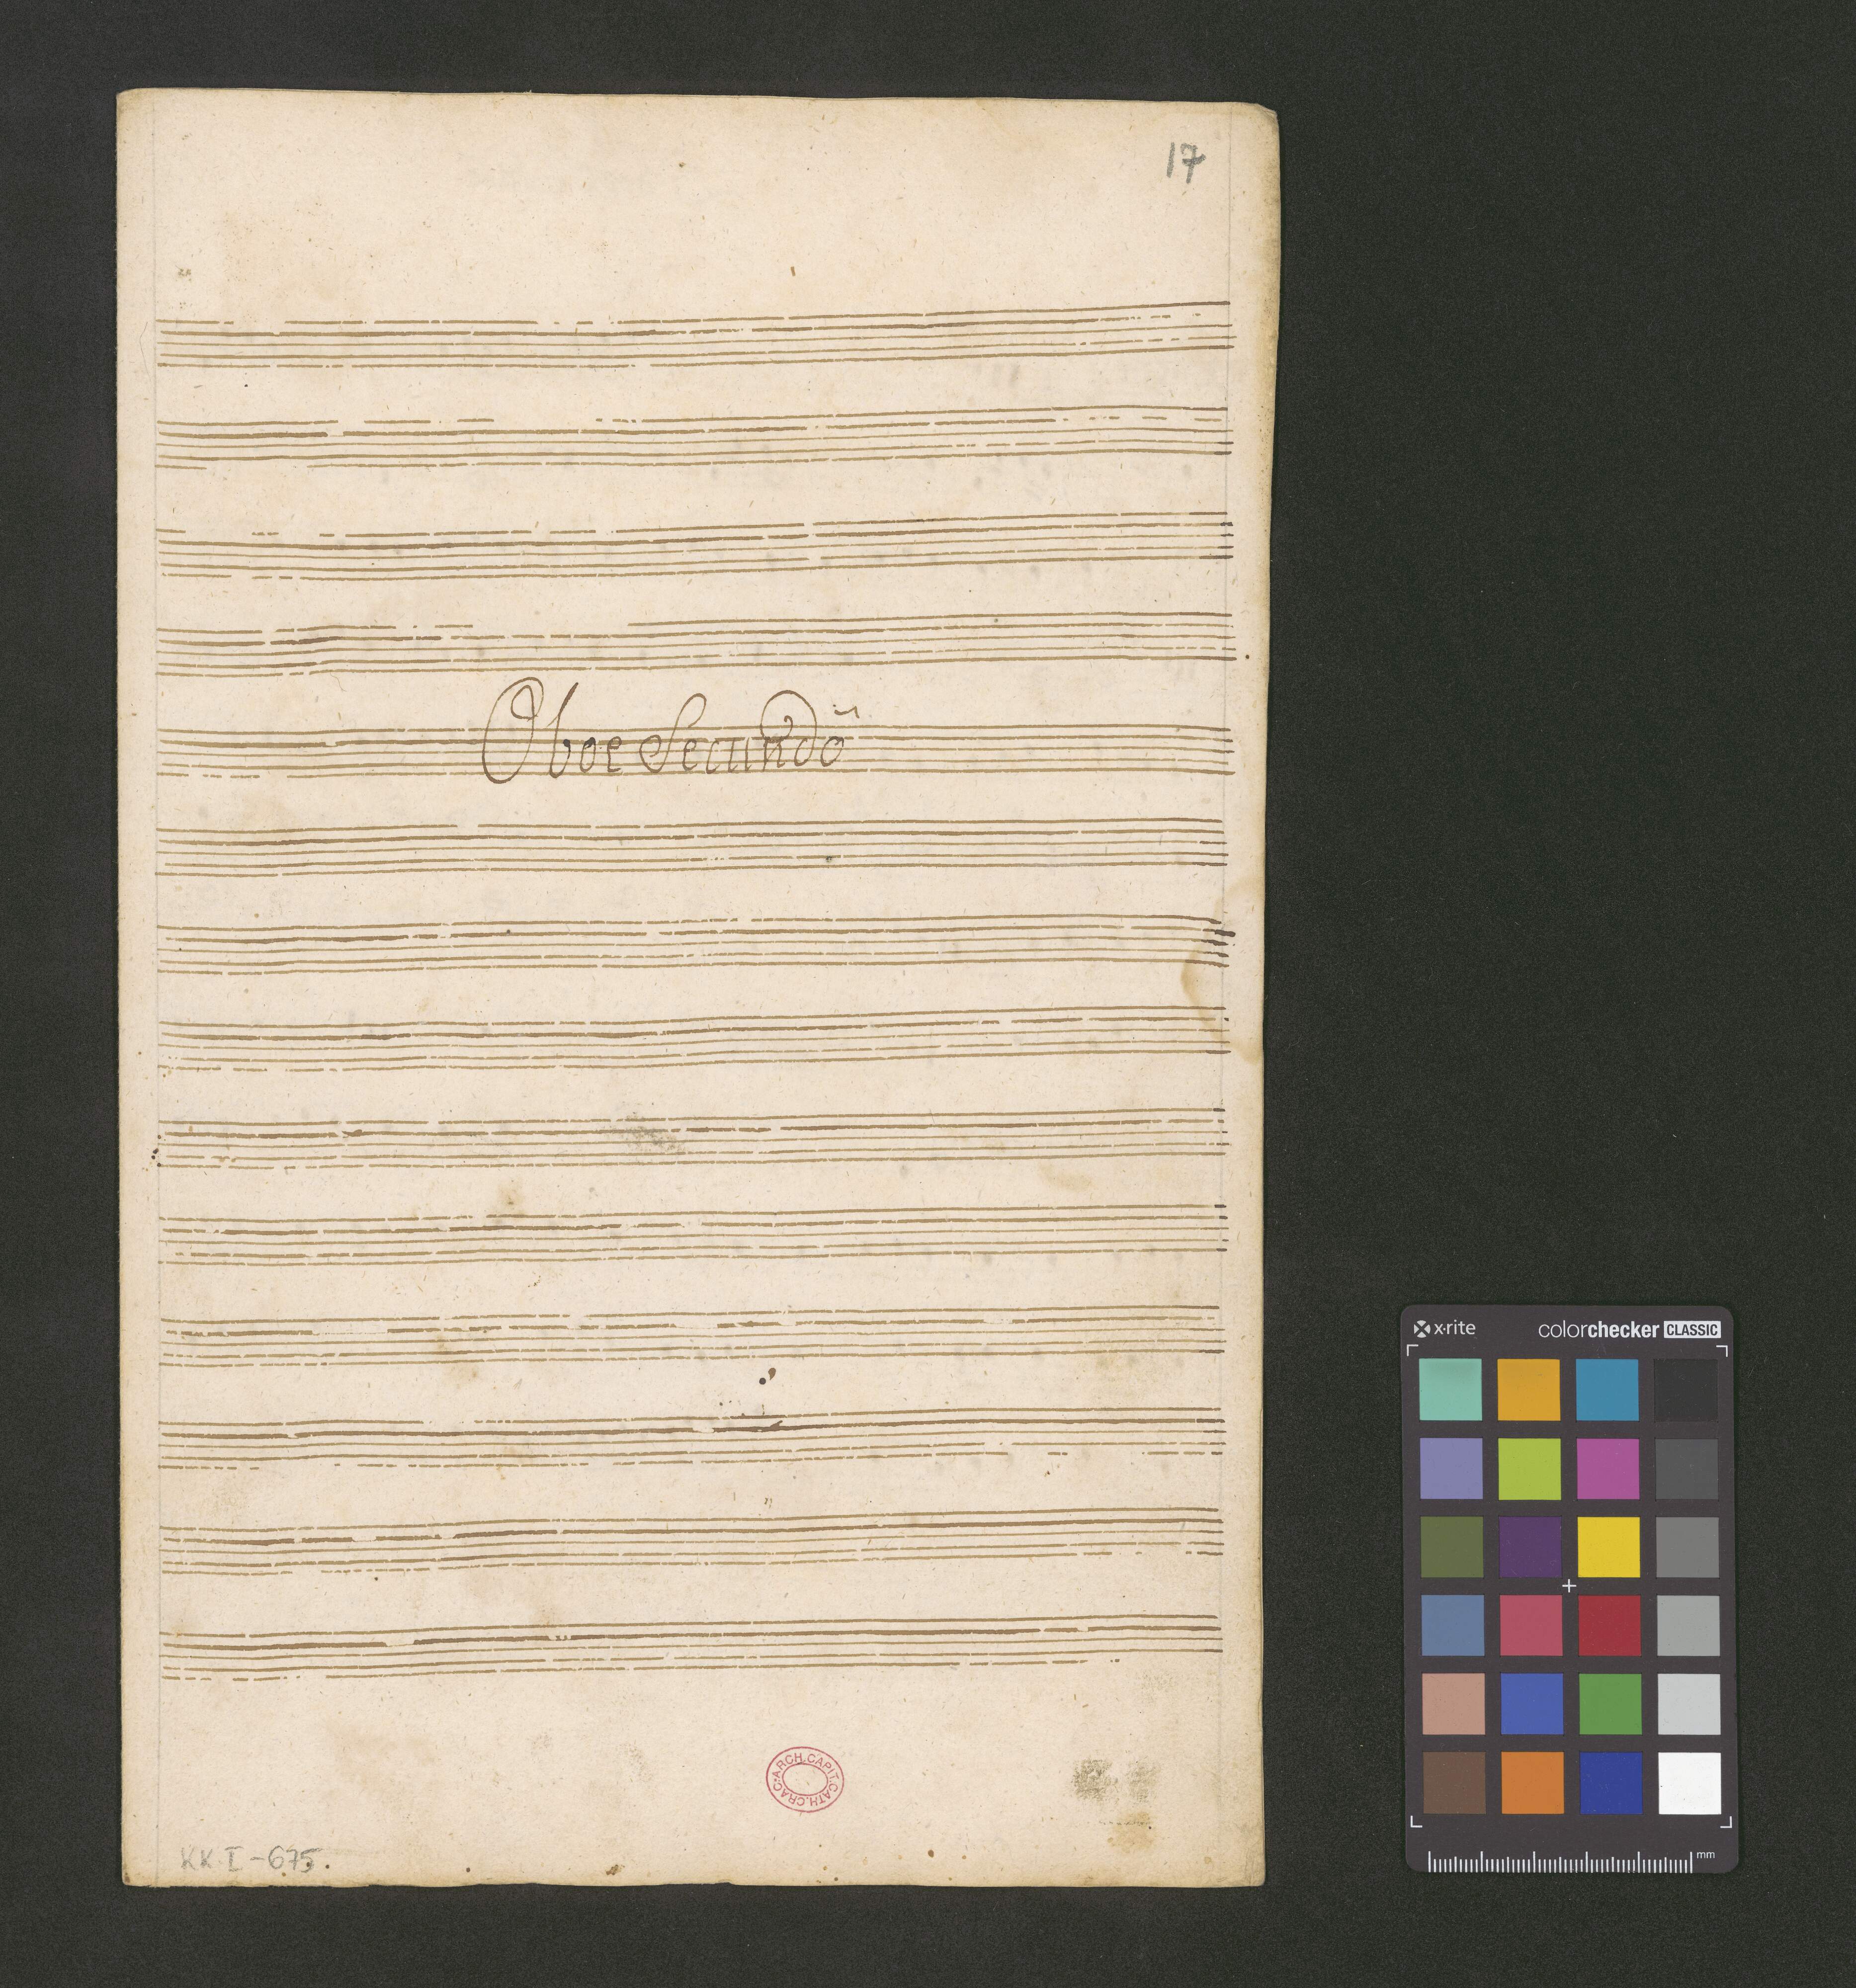 17
Oboe Secundo
ARCH.CAPIT.CATH.CRAC.
KK I-675.
x-rite
colorchecker CLASSIC
mm